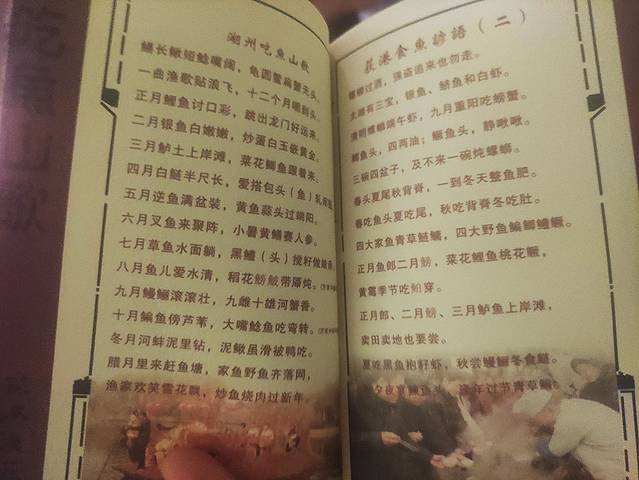 湖州吃鱼山歌
鳗长鳅短鲶嘴阔，龟圆鳖扁蟹无头。
一曲渔歌贴浪飞，十二个月唱到头。
正月鲤鱼讨口彩，跳出龙门好运来。
二月银鱼白嫩嫩，炒蛋白玉嵌黄金。
三月鲈土上岸滩，菜花鲫鱼跟着来。
四月白鲢半尺长，爱搭包头（鱼）乳腐
五月逆鱼满盆装，黄鱼蒜头过端阳。
六月叉鱼来聚阵，小暑黄鳝赛人参。
七月草鱼水面躺，黑鳢（头）搅籽做
八月鱼儿爱水清，稻花鲂鲏带屙炖。
九月鳗鲡滚滚壮，九雌十雄河蟹香。
十月鳊鱼傍芦苇，大嘴鲶鱼吃弯转。
冬月河蚌泥里钻，泥鳅虽滑被鸭吃。
腊月里来赶鱼塘，家鱼野鱼齐落网，
渔家欢笑雪花飘，炒鱼烧肉过新年
荻港食鱼谚语（二）
螺蛳过酒，强盗追来也勿走。
太湖有三宝，银鱼、鲚鱼和白虾。
清明螺蛳端午虾，九月重阳吃螃蟹。
鲫鱼头，四两油；鳜鱼头，静啾啾。
三碗四盆子，及不来一碗炖螺蛳。
春头夏尾秋背脊，一到冬天整鱼肥。
春吃鱼头夏吃尾，秋吃背脊冬吃肚。
四大家鱼青草鲢鳙，四大野鱼鳊鲫鳢鳜。
正月鱼郎二月鲂，菜花鲤鱼桃花鳜，
黄霉季节吃 穿。
正月郎、二月鲂、三月鲈鱼上岸滩，
卖田卖地也要尝。
夏吃黑鱼抱籽虾，秋尝鳗鲡冬食鲢。
夕夜 鲢鱼头，逢年过节青草鳊。